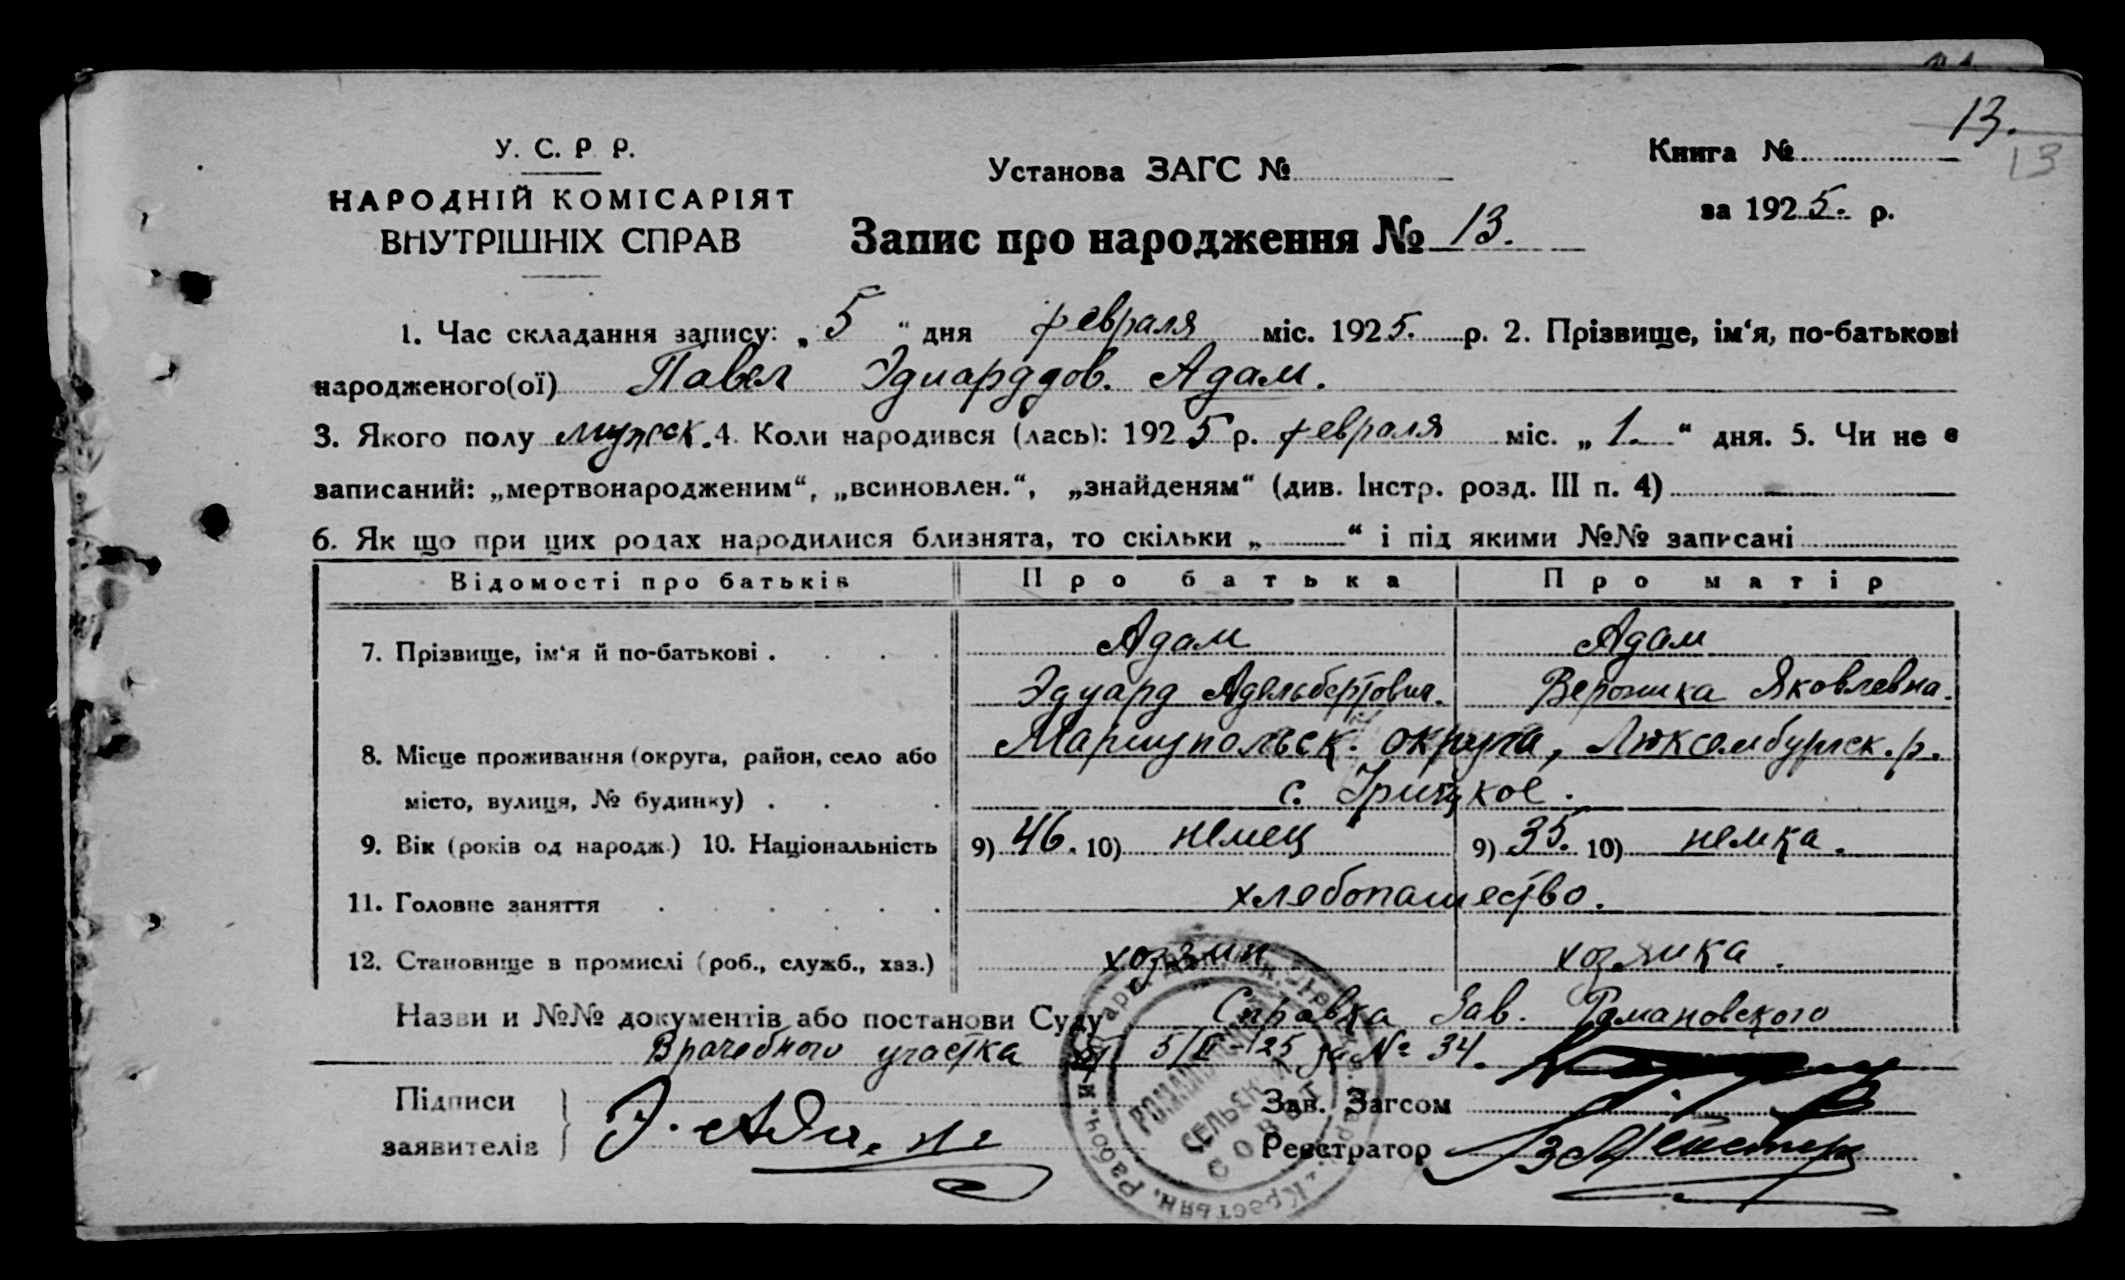 13.
13
У. С. Р. Р.
НАРОДНІЙ КОМІСАРІЯТ
ВНУТРІШНІХ СПРАВ
Установа ЗАГС №
Книга №
за 1925. р.
Запис про народження № 13.
1. Час складання запису: „ 5 “ дня февраля міс. 1925. р. 2. Прізвище, ім‘я, по-батькові
народженого(ої) Павел Эдуардов. Адам.
3. Якого полу мужск. 4. Коли народився (лась): 1925 р. февраля міс. „ 1. “ дня. 5. Чи не є
записаний: „мертвонародженим“, „всиновлен.“, „знайденям“ (див. Інстр. розд. III п. 4)
6. Як що при цих родах народилися близнята, то скільки „ “ і під якими №№ записані
Відомості про батьків Про батька Про матір
7. Прізвище, ім‘я й по-батькові . Адам Адам
Эдуард Адельбертович. Вероника Яковлевна.
8. Місце проживання (округа, район, село або Мариупольск. округа, Люксембургск. р.
місто, вулиця, № будинку) . с. Урицкое.
9. Вік (років од народж.) 10. Національність 9) 46. 10) немец 9) 35. 10) немка.
11. Головне заняття хлебопашество.
12. Становище в промислі (роб., служб., хаз.) хозяин хозяйка.
Назви и №№ документів або постанови Суду Справка Зав. Романовского
Врачебного участка от 5/II-25 за № 34.
Підписи
заявителів
Э. Адам
Зав. Загсом
Реєстратор
РОМАНОВСК
СЕЛЬСК
СОВЕТ
Рабоч. Крестьян.